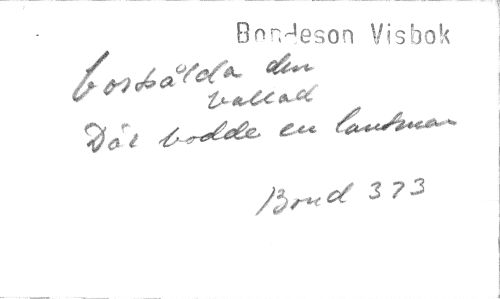 Bondeson Visbok
bortsålda den
ballad
Där bodde en lantman
Bond 373